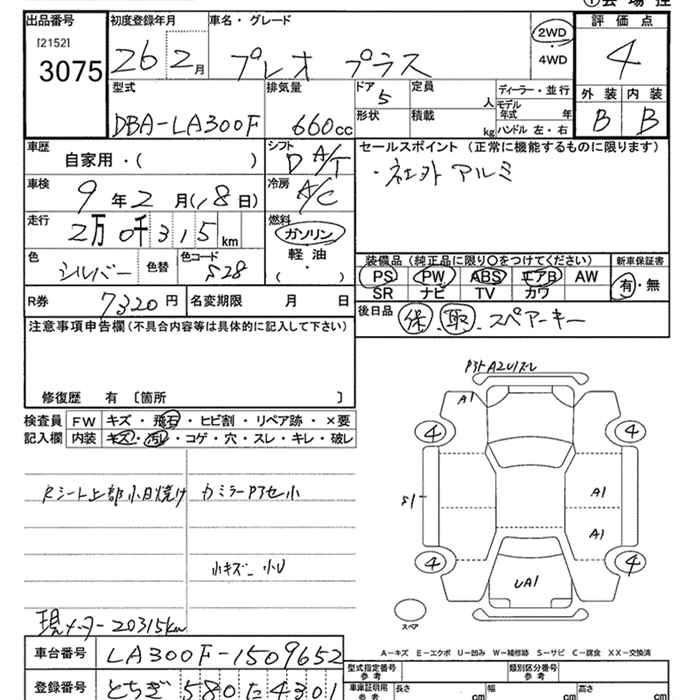 ①会場控
出品番号
[2152]
3075
初度登録年月
26 2月
車名・グレード
プレオ プラス
2WD
・
4WD
評価点
4
外装 内装
B B
型式
DBA-LA300F
排気量
660cc
ドア
5
形状
定員
人
積載
kg
ディーラー・並行
モデル年式 年
ハンドル 左・右
車歴
自家用・( )
シフト
D A/T
セールスポイント (正常に機能するものに限ります)
・社外アルミ
車検
9年2月(18日)
冷房
A/C
走行
2万0千315km
燃料
ガソリン
軽油
(・)
色
シルバー
色替
色コード
S28
装備品 (純正品に限り○をつけてください)
PS PW ABS エアB AW
SR ナビ TV カワ
新車保証書
有・無
R券
7320円
名変期限 月 日
後日品
保 取 スペアーキー
注意事項申告欄 (不具合内容等は具体的に記入して下さい)
修復歴 有 〔箇所 〕
検査員記入欄
FW キズ・飛石・ヒビ割・リペア跡・×要
内装 キズ・汚レ・コゲ・穴・スレ・キレ・破レ
Rシート上部小日焼け
カミラーPアセ小
小キズ 小U
現メーター20315km
A1
4 4
S1
A1
A1
4 4
UA1
スペア
A-キズ E-エクボ U-凹み W-補修跡 S-サビ C-腐食 XX-交換済
車台番号
LA300F-1509652
登録番号
とちぎ 580 た 4301
型式指定番号
参考
類別区分番号
参考
車庫証明用
参考
長さ cm
幅 cm
高さ cm